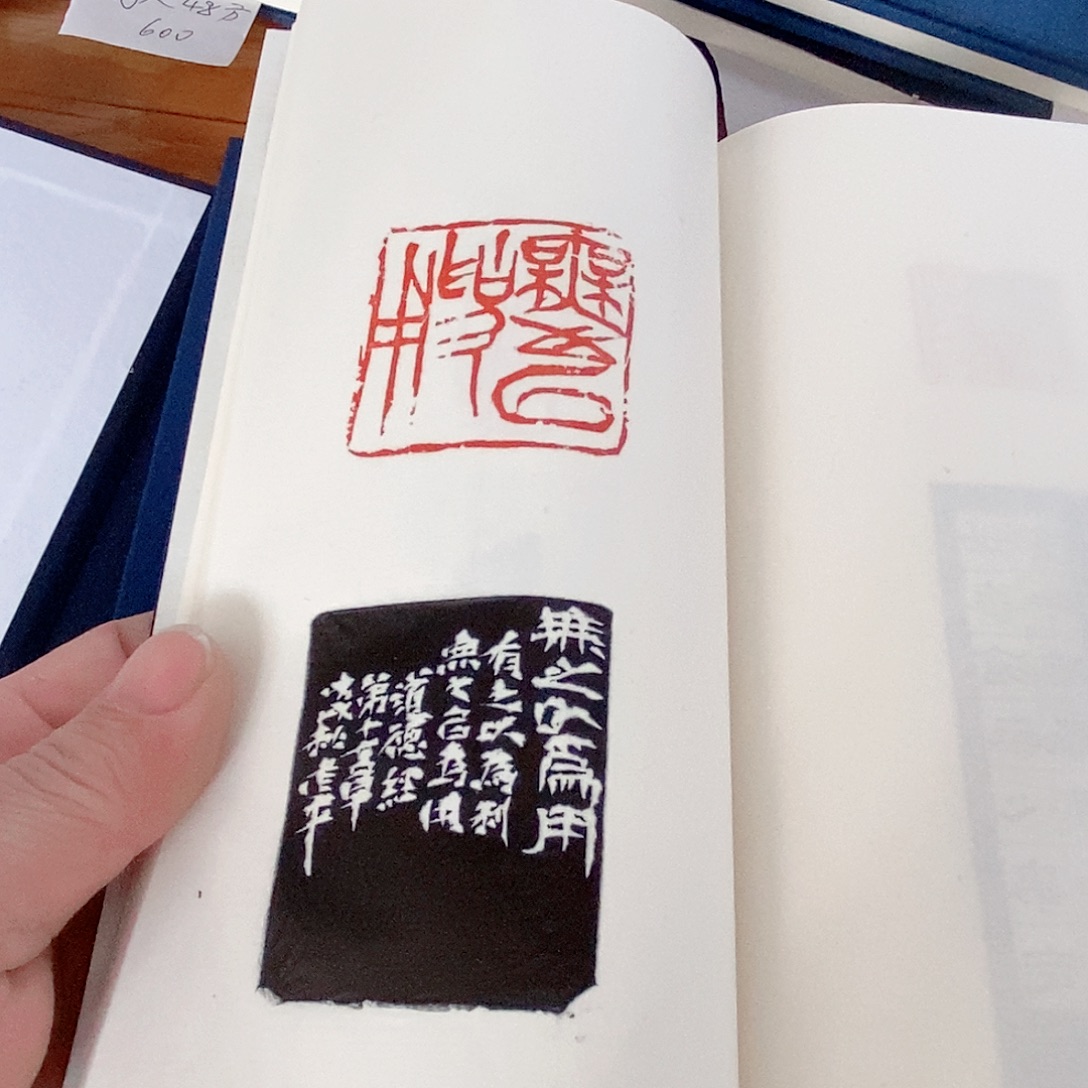 48方
600
無之以
為用
無之以為用
有之以為利
無之以為用
道德經
第十一章
戊戌秋